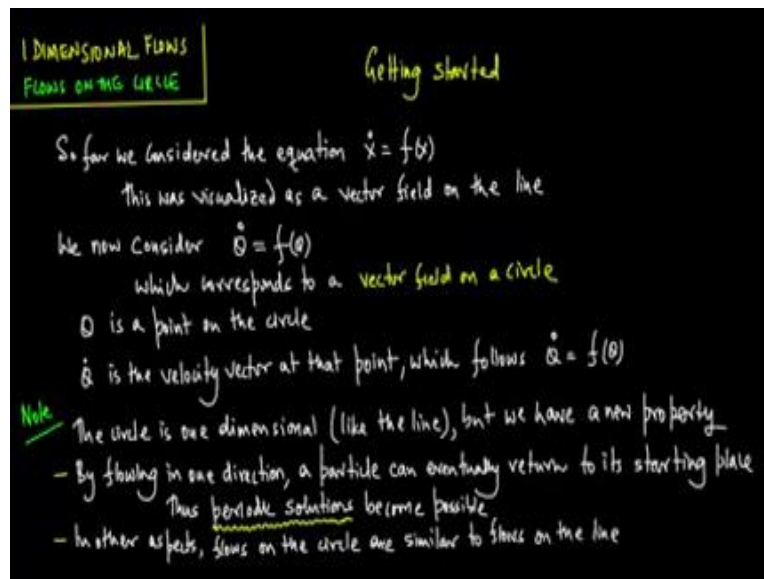 1 DIMENSIONAL FLOWS
FLOWS ON THE CIRCLE
Getting started
So far we considered the equation ẋ = f(x)
This was visualized as a vector field on the line
We now consider θ̇ = f(θ)
which corresponds to a vector field on a circle
θ is a point on the circle
θ̇ is the velocity vector at that point, which follows θ̇ = f(θ)
Note
The circle is one dimensional (like the line), but we have a new property
- By flowing in one direction, a particle can eventually return to its starting place
Thus periodic solutions become possible
- In other aspects, flows on the circle are similar to flows on the line